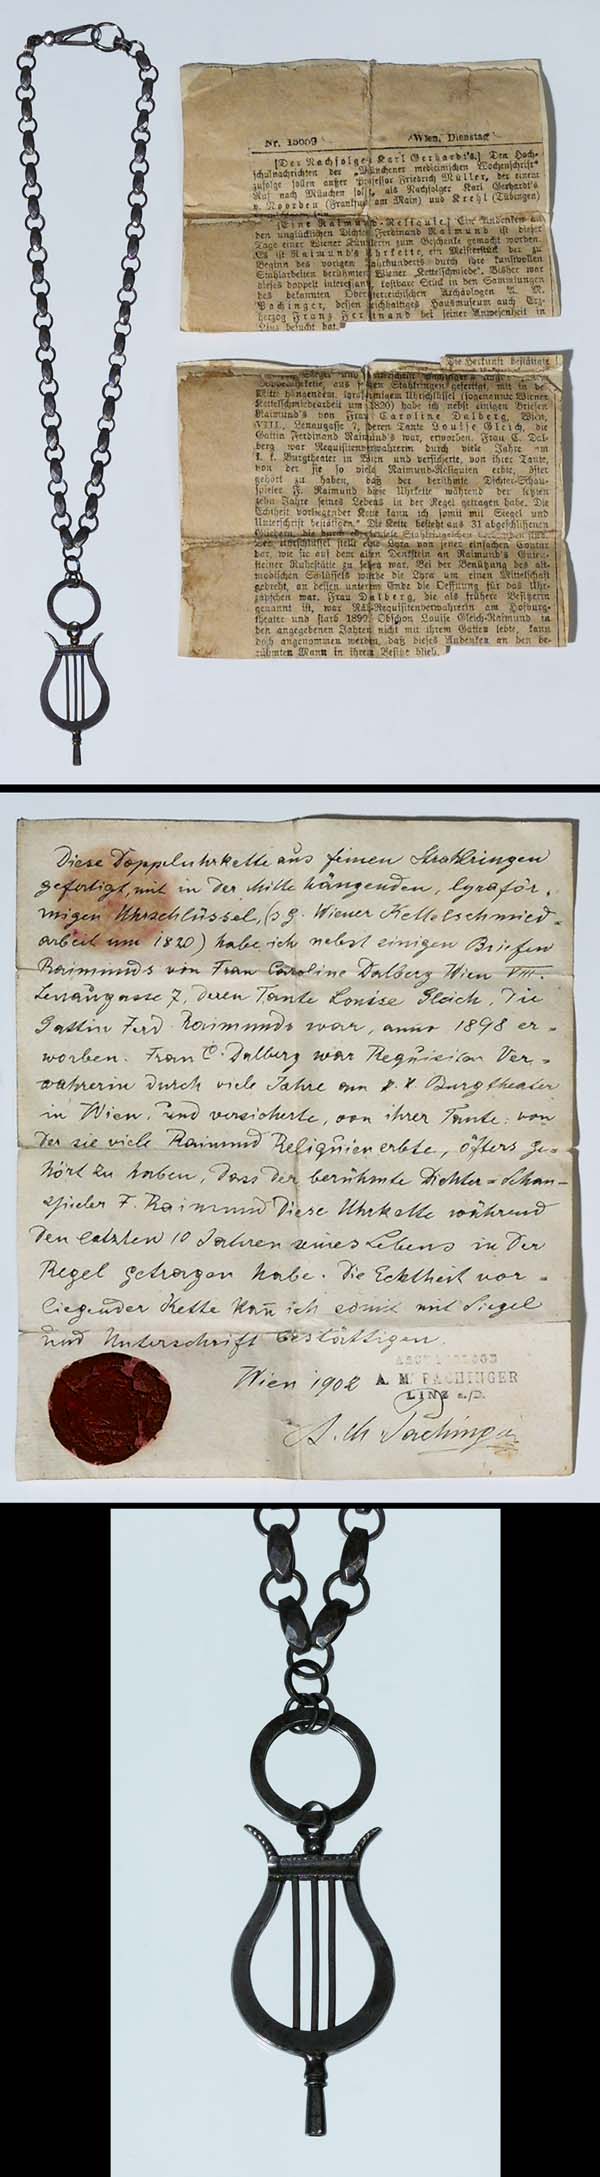 Nr. 15009 Wien, Dienstag
[Der Nachfolger Karl Gerhardt's.] Den Hoch-
schulnachrichten der "Münchener medicinischen Wochenschrift"
zufolge sollen außer Professor Friedrich Müller, der einem
Ruf nach München folgt, als Nachfolger Karl Gerhardt's
v. Noorden (Frankfurt am Main) und Krehl (Tübingen)
[Eine Raimund-Reliquie.] Ein Andenken an
den unglücklichen Dichter Ferdinand Raimund ist dieser
Tage einer Wiener Künstlerin zum Geschenke gemacht worden.
Es ist Raimund's Uhrkette, ein Meisterstück der zu
Beginn des vorigen Jahrhunderts durch ihre kunstvollen
Stahlarbeiten berühmten Wiener "Kettelschmiede". Bisher war
dieses doppelt interessante kostbare Stück in den Sammlungen
des bekannten Oberösterreichischen Archäologen A. M.
Pachinger, dessen reichhaltiges Hausmuseum auch Erz-
herzog Franz Ferdinand bei seiner Anwesenheit in
Linz besucht hat.
Die Herkunft bestätigte
Siegel und
Doppeluhrkette, aus feinen Stahlringen gefertigt, mit in der
Mitte hängendem, lyraförmigem Uhrschlüssel (sogenannte Wiener
Kettelschmiedearbeit um 1820) habe ich nebst einigen Briefen
Raimund's von Frau Caroline Dalberg, Wien,
VIII., Lenaugasse 7, deren Tante Louise Gleich, die
Gattin Ferdinand Raimund's war, erworben. Frau C. Dal-
berg war Requisitenverwahrerin durch viele Jahre am
k. k. Burgtheater in Wien und versicherte, von ihrer Tante,
von der sie so viele Raimund-Reliquien erbte, öfter
gehört zu haben, daß der berühmte Dichter-Schau-
spieler F. Raimund diese Uhrkette während der letzten
zehn Jahre seines Lebens in der Regel getragen habe. Die
Echtheit vorliegender Kette kann ich somit mit Siegel und
Unterschrift bestätigen." Die Kette besteht aus 31 abgeschliffenen
Gliedern, die durch Stahlringelchen verbunden sind.
Der Uhrschlüssel stellt eine Lyra von jener einfachen Contur
dar, wie sie auf dem alten Denkstein an Raimund's Guten-
steiner Ruhestätte zu sehen war. Bei der Benützung des alt-
modischen Schlüssels wurde die Lyra um einen Mittelschaft
gedreht, an dessen unterem Ende die Oeffnung für das Uhr-
zäpfchen war. Frau Dalberg, die als frühere Besitzerin
genannt ist, war Näh-Requisitenverwahrerin am Hofburg-
theater und starb 1899. Obschon Louise Gleich-Raimund in
den angegebenen Jahren nicht mit ihrem Gatten lebte, kann
doch angenommen werden, daß dieses Andenken an den be-
rühmten Mann in ihrem Besitze blieb.
Diese Doppeluhrkette aus feinen Strahlringen
gefertigt, mit in der Mitte hängenden, lyraför-
migen Uhrschlüssel, (sg. Wiener Kettelschmied-
arbeit um 1820) habe ich nebst einigen Briefen
Raimunds von Frau Caroline Dalberg Wien VIII.
Lenaugasse 7, deren Tante Louise Gleich, die
Gattin Ferd. Raimunds war, anno 1898 er-
worben. Frau C. Dalberg war Requisiten Ver-
wahrerin durch viele Jahre am k. k. Burgtheater
in Wien, und versicherte, von ihrer Tante, von
der sie viele Raimund Religuien erbte, öfters ge-
hört zu haben, dass der berühmte Dichter-Schau-
spieler F. Raimund diese Uhrkette während
den letzten 10 Jahren seines Lebens in der
Regel getragen habe. Die Echtheit vor-
liegender Kette kan̄ ich somit mit Siegel
und Unterschrift bestättigen.
Wien 1902
ARCHÄOLOGE
A. M. PACHINGER
LINZ a./D.
A. M. Pachinger